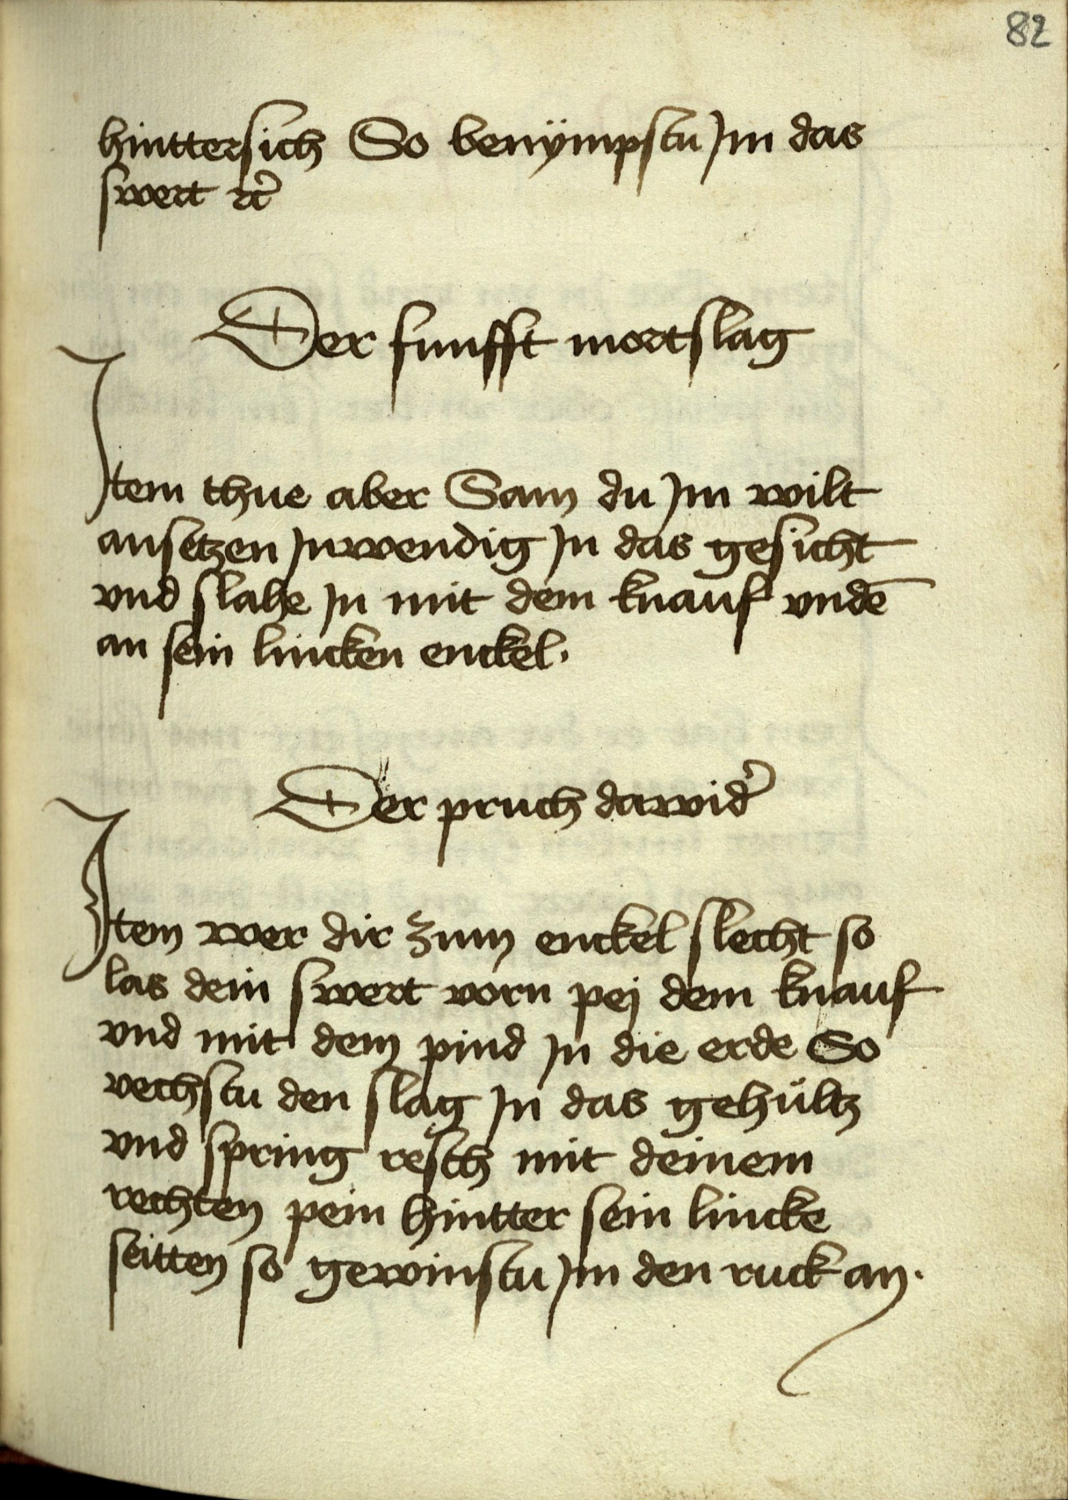 82
hinttersich So benÿmpstu Jm das
swert ⁊c̃
Der funfft mortslag
Jtem thue aber Sam du Jm wilt
ansetzen Jnwendig Jn das gesicht
vnd slahe Jn mit dem knauf vndē
an sein lincken enckel.
Der pruch dawid̉
Jtem wer dir zum enckel slecht so
las dein swert vorn pej dem knauf
vnd mit dem pind Jn die erde So
vechstu den slag Jn das gehültz
vnd spring resch mit deinem
rechten pein hintter sein lincke
seitten so gewinstu Jm den ruck an.